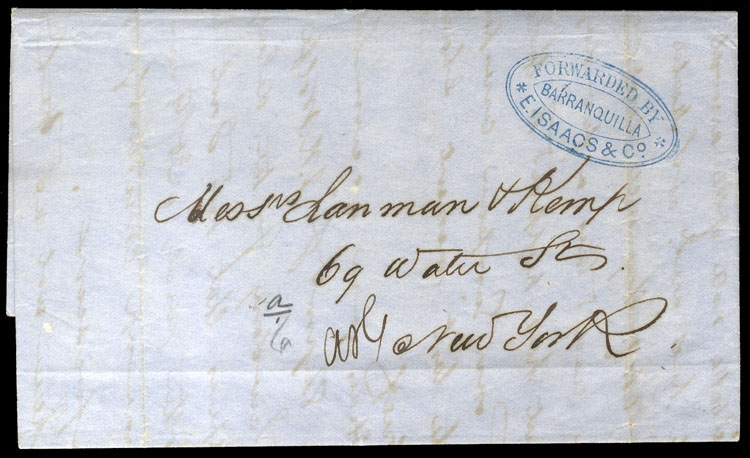 FORWARDED BY
BARRANQUILLA
* E. ISAACS & Co *
Messrs Lanman & Kemp
69 Water St.
New York.
a/6